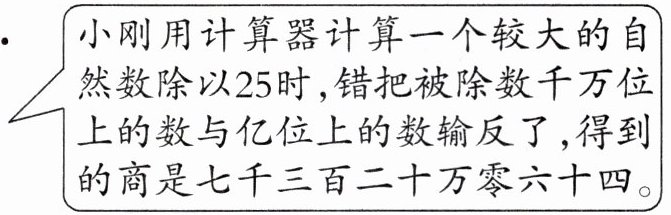 小刚用计算器计算一个较大的自
然数除以25时,错把被除数千万位
上的数与亿位上的数输反了,得到
的商是七千三百二十万零六十四。